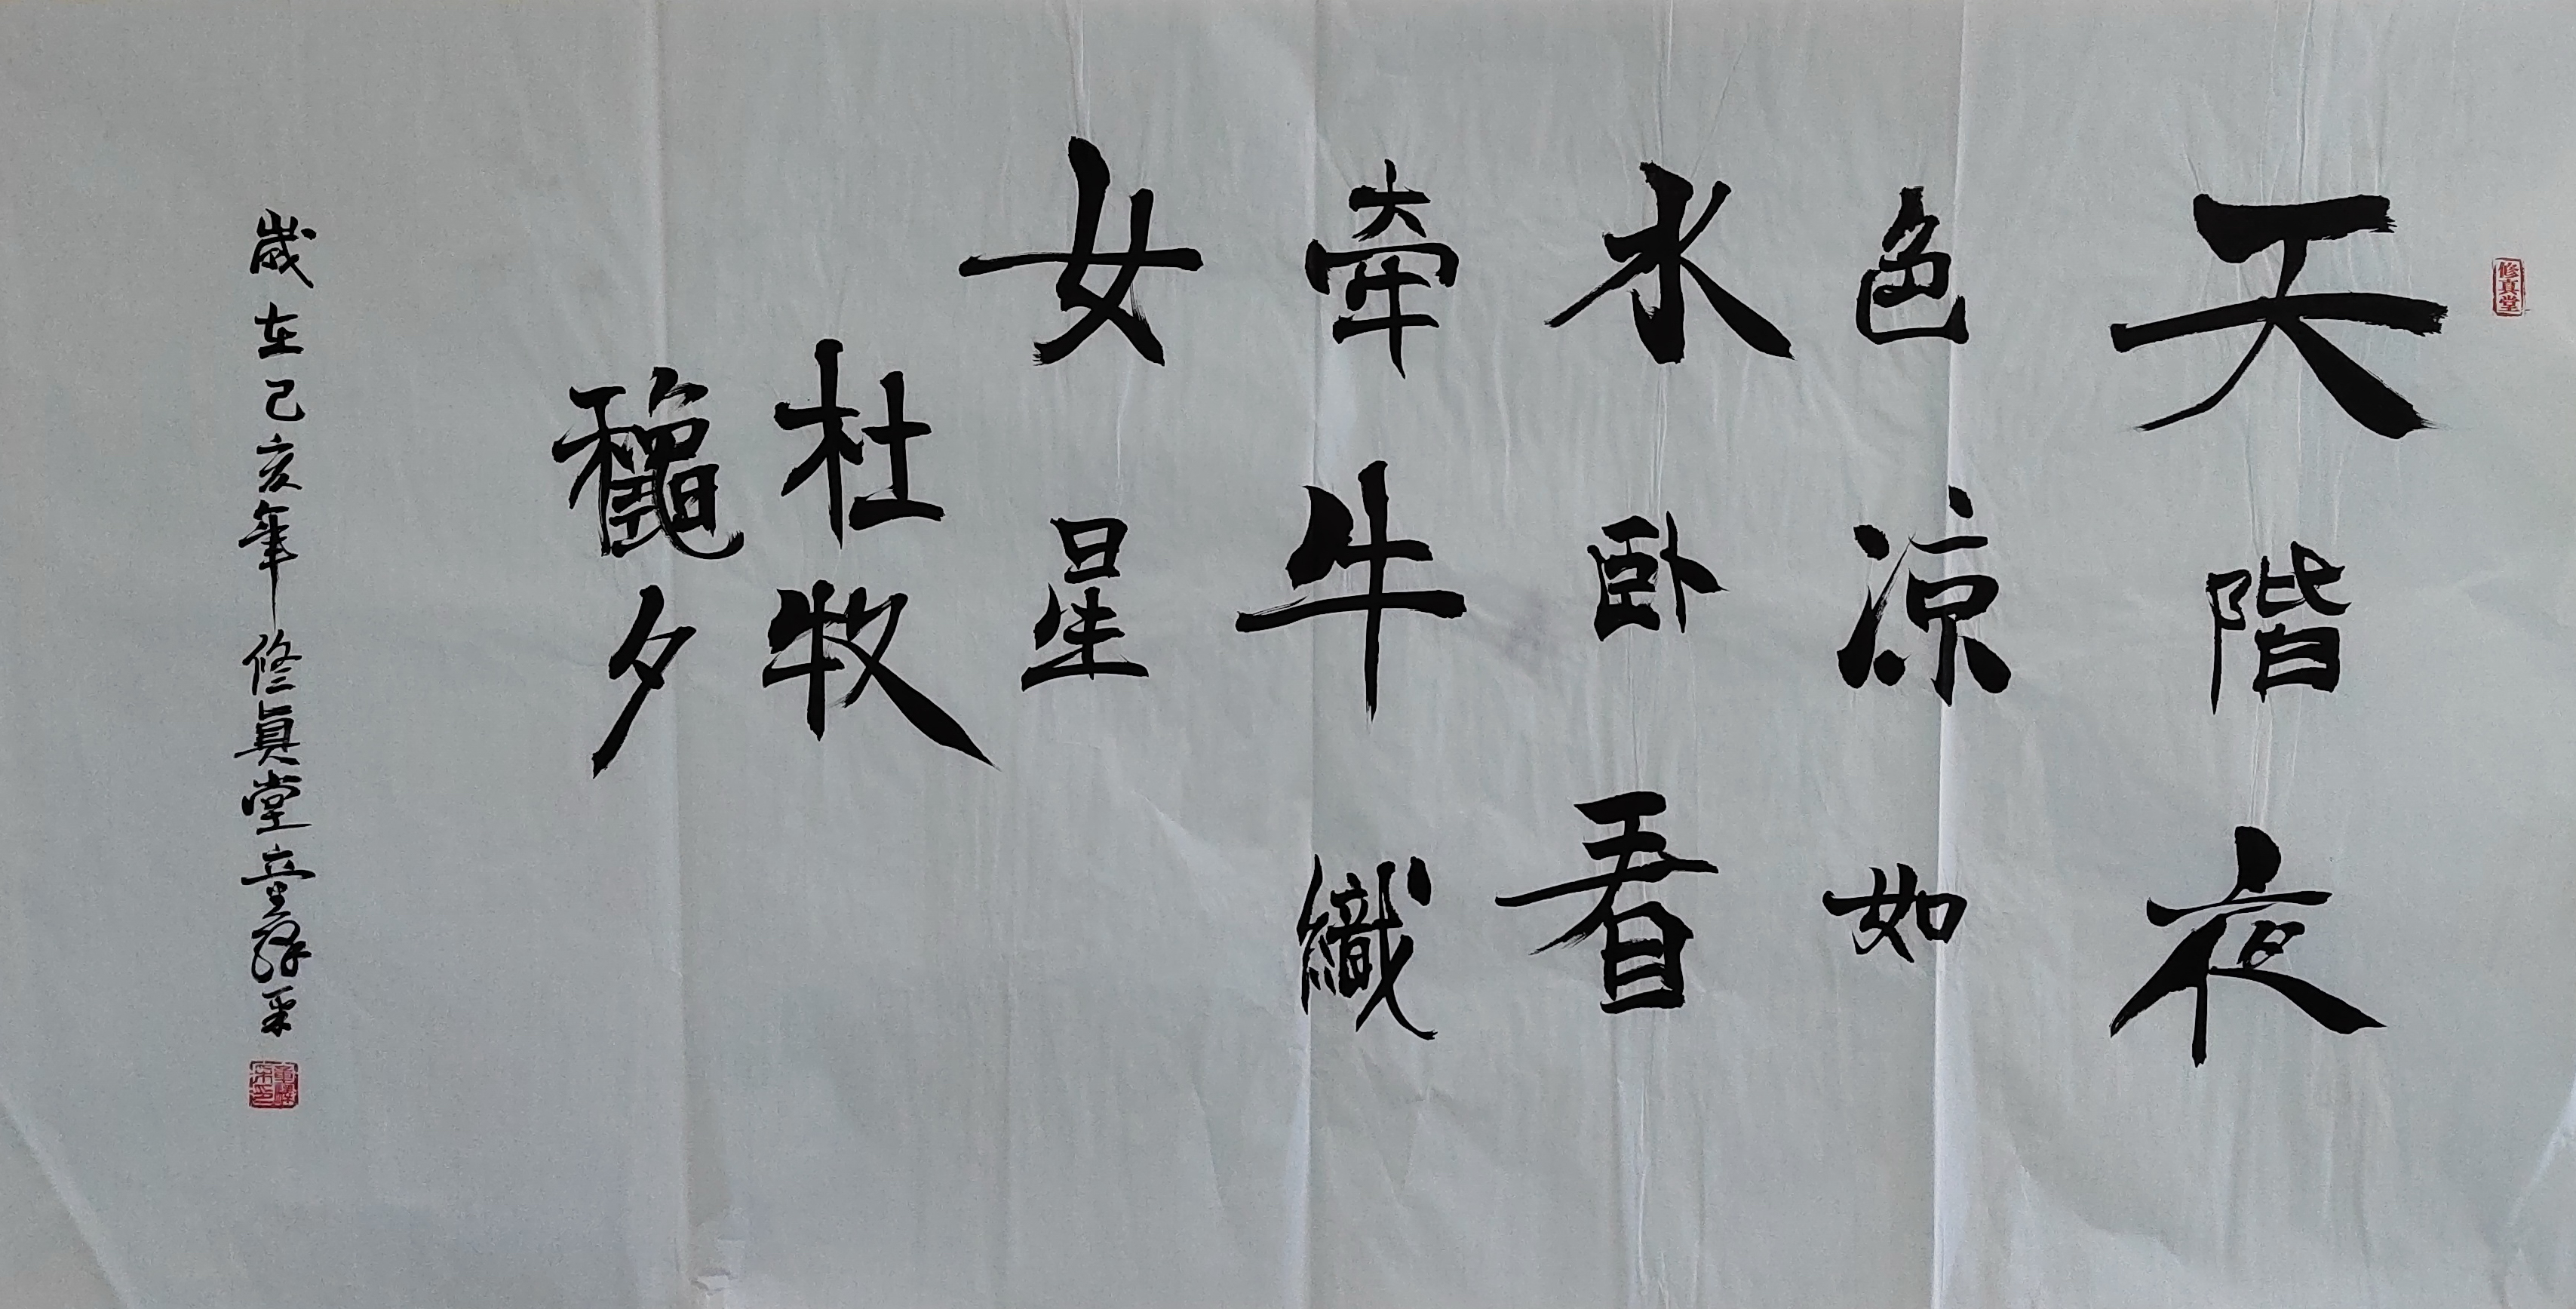 修真堂
天階夜
色凉如
水卧看
牵牛織
女星
杜牧
龝夕
歲在己亥年修真堂童